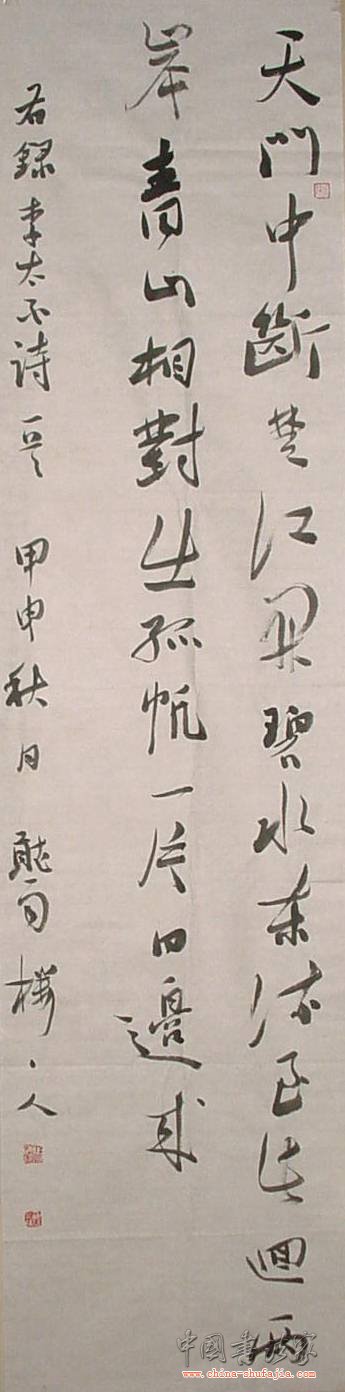 天門中斷楚江開碧水東流至此迴兩
岸青山相對出孤帆一片日邊來
右錄李太白詩一首 甲申秋月 聽雨樓主人
中國書法家
www.china-shufajia.com